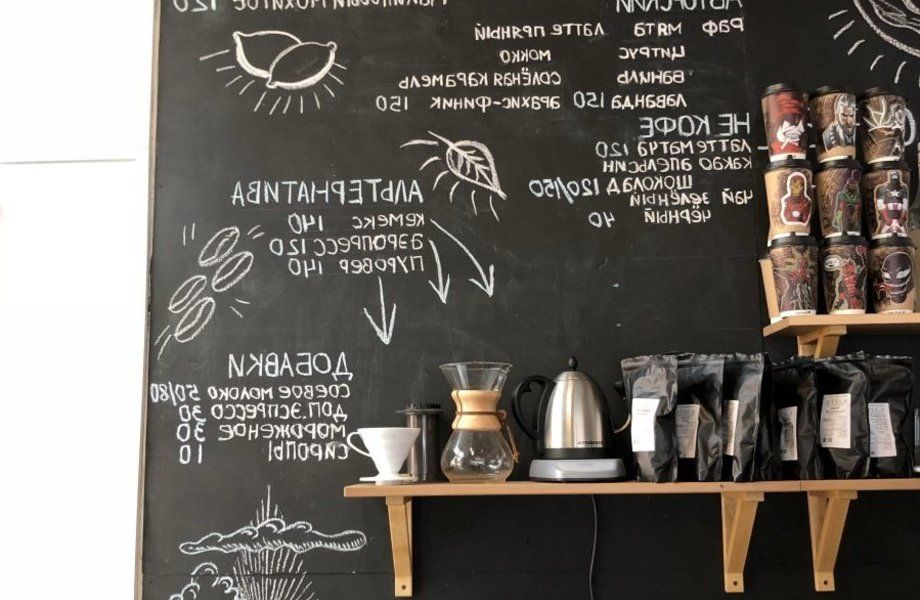 АВТОРСКИЙ
РАФ МЯТА ЛАТТЕ ПРЯНЫЙ
ЦИТРУС МОККО
ВАНИЛЬ СОЛЁНАЯ КАРАМЕЛЬ
ЛАВАНДА 150 АРАХИС-ФИНИК 150
НЕ КОФЕ
ЛАТТЕ МАТЧА 120
КАКАО АПЕЛЬСИН
ШОКОЛАД 120/150
ЧАЙ ЗЕЛЁНЫЙ
ЧЁРНЫЙ 40
120
АЛЬТЕРНАТИВА
КЕМЕКС 140
АЭРОПРЕСС 120
ПУРОВЕР 140
ДОБАВКИ
СОЕВОЕ МОЛОКО 50/80
ДОП. ЭСПРЕССО 30
МОРОЖЕНОЕ 30
СИРОПЫ 10